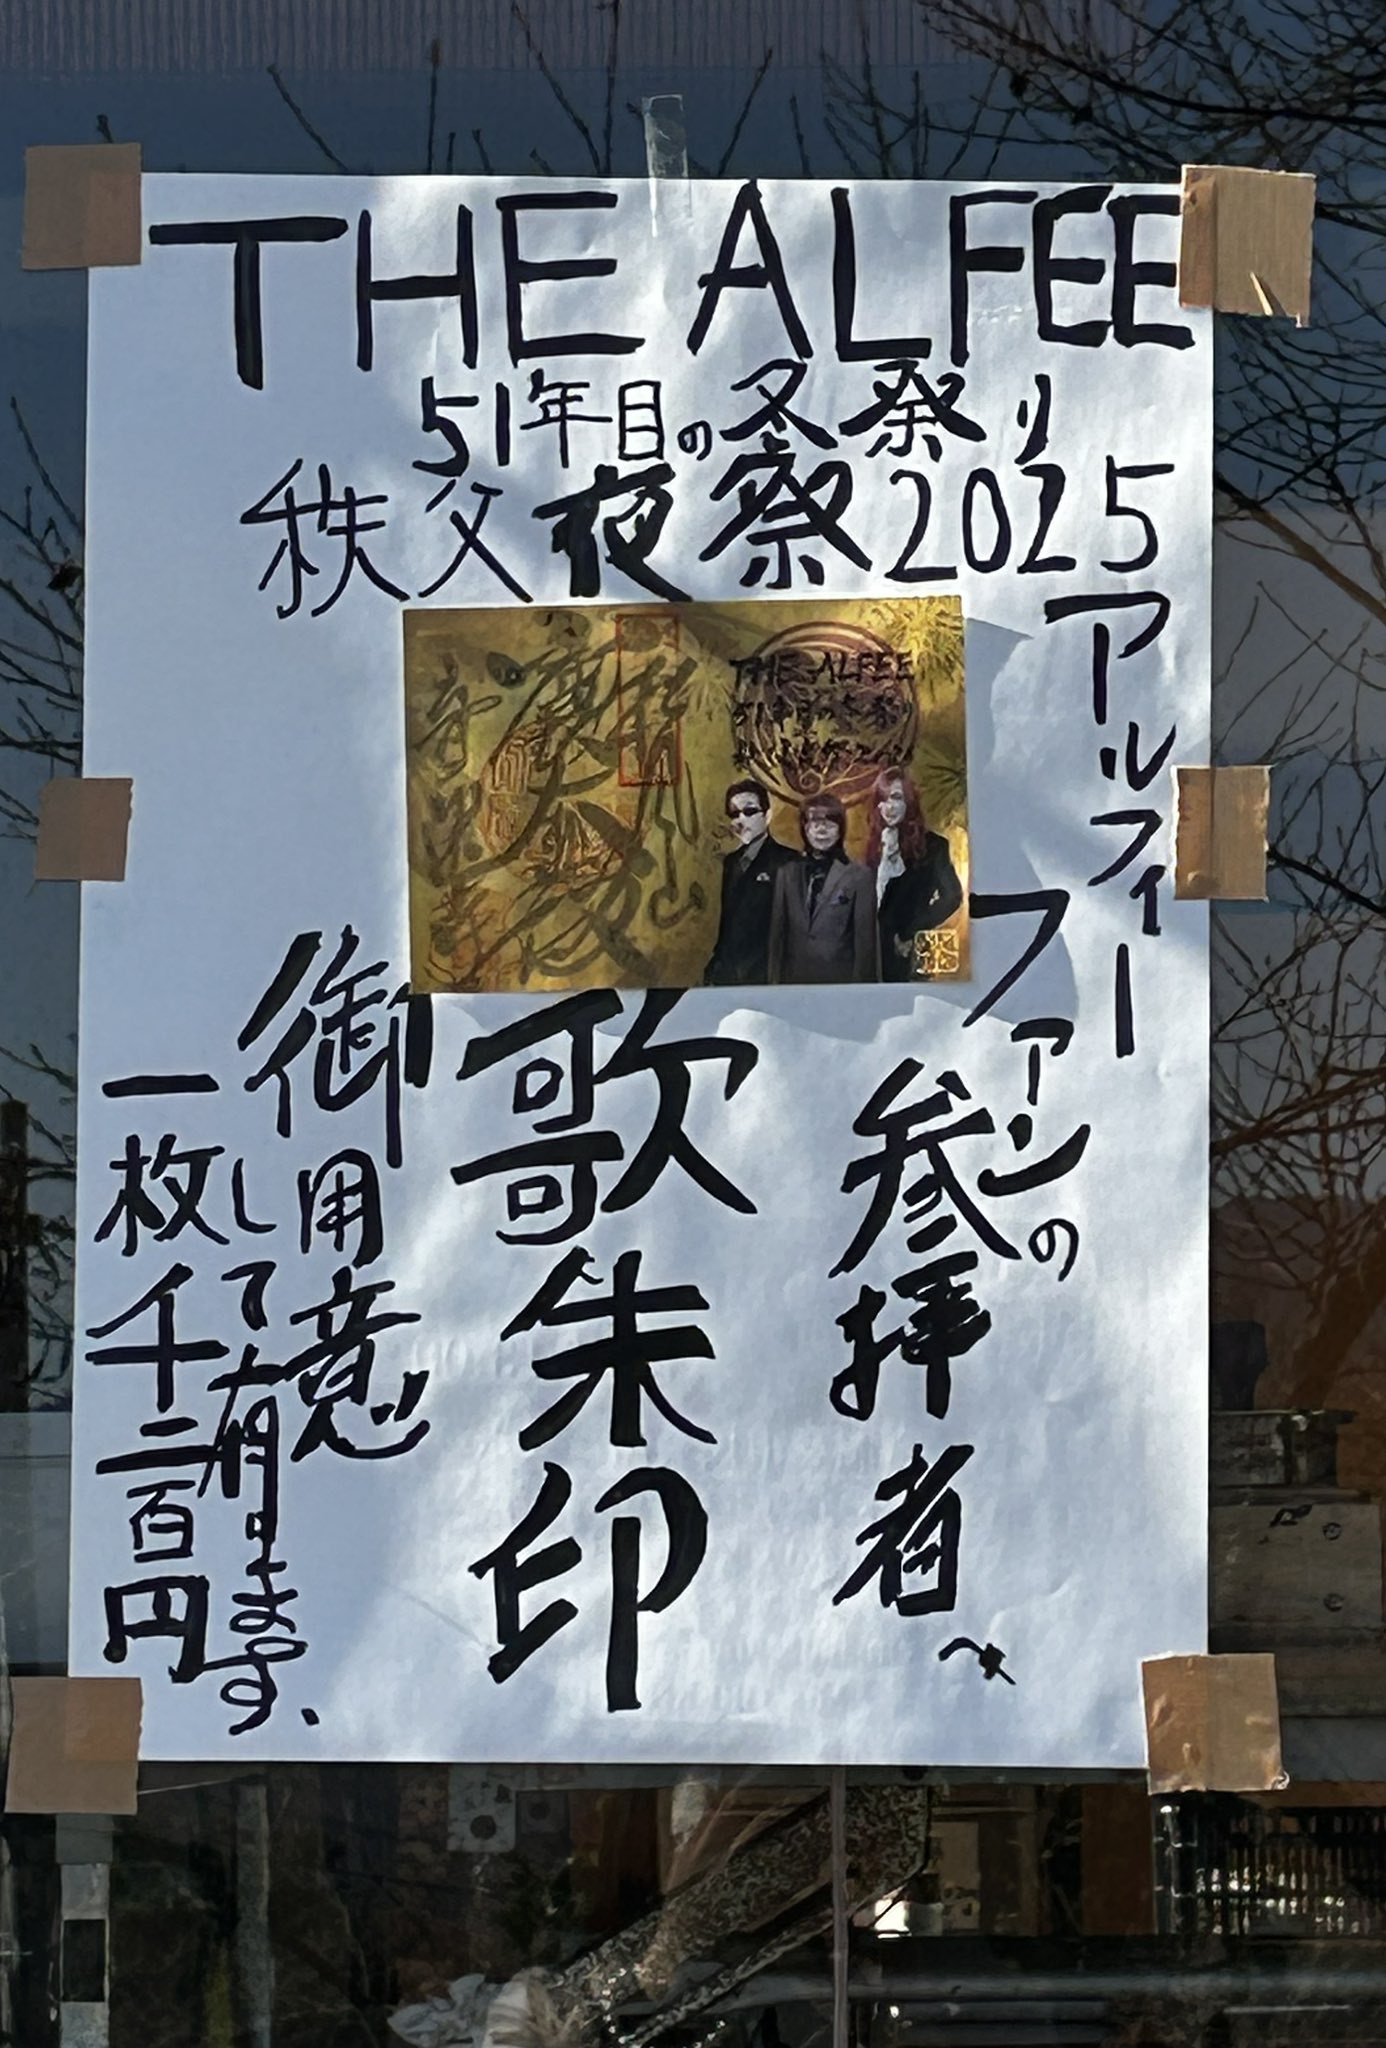 THE ALFEE
51年目の冬祭り
秩父夜祭2025
THE ALFEE
アルフィー
ファンの
参拝者へ
歌朱印
御用意
して有ります、
一枚千二百円